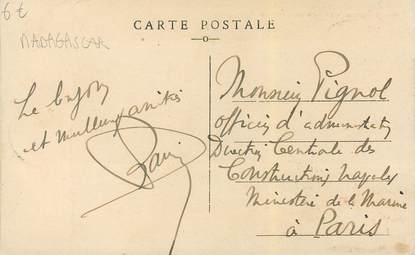 6 €
MADAGASCAR
CARTE POSTALE
Le
et meilleures amitiés
Monsieur Pignol
officier d'administration
Direction Centrale des
Constructions Navales
Ministère de la Marine
à Paris